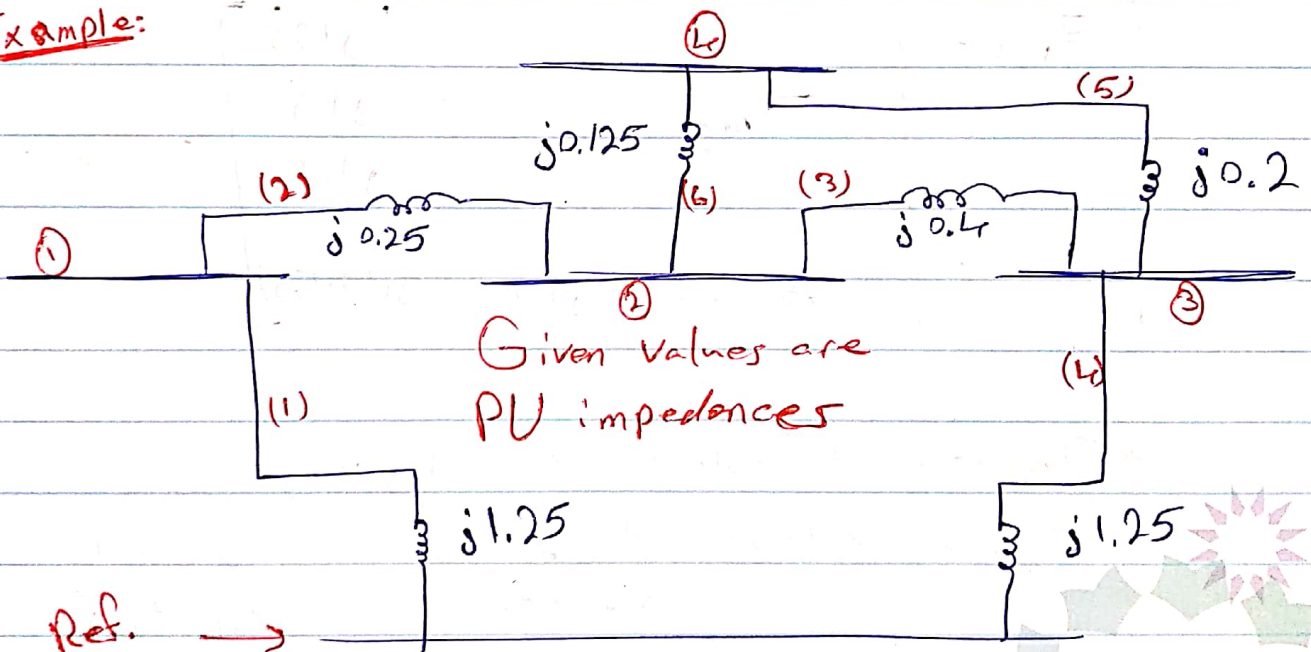 Example:
④
(5)
j0.125
j0.2
(2)
(6)
(3)
j0.25
j0.4
①
②
③
Given values are
PU impedances
(4)
(1)
j1.25
j1.25
Ref.